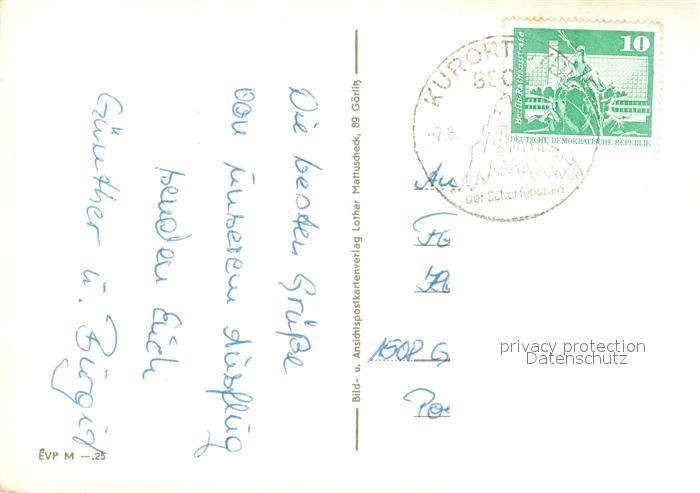 Die besten Grüße
von unserem Ausflug
senden Euch
Günther u. Birgit
EVP M —.25
Bild- u. Ansichtspostkartenverlag Lothar Mattuscheck, 89 Görlitz
KURORT
der Scharfenstein
10
Berlin · Rathausstraße
DEUTSCHE DEMOKRATISCHE REPUBLIK
An
privacy protection
Datenschutz